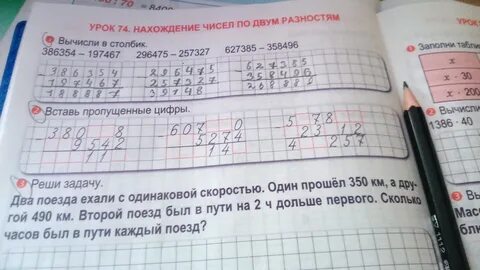 УРОК 74. НАХОЖДЕНИЕ ЧИСЕЛ ПО ДВУМ РАЗНОСТЯМ
1 Вычисли в столбик.
386354 – 197467 296475 – 257327 627385 – 358496
– 386354 – 296475 – 627385
197467 257327 358496
188887 39148 268889
2 Вставь пропущенные цифры.
– 380 8 – 607 0 – 5 78
9542 5274 23 12
11 14 4 257
3 Реши задачу.
Два поезда ехали с одинаковой скоростью. Один прошёл 350 км, а дру-
гой 490 км. Второй поезд был в пути на 2 ч дольше первого. Сколько
часов был в пути каждый поезд?
УРОК
1 Заполни табли
x
x · 30
x · 200
2 Вычисли
1386 · 40
3
Мас
блю